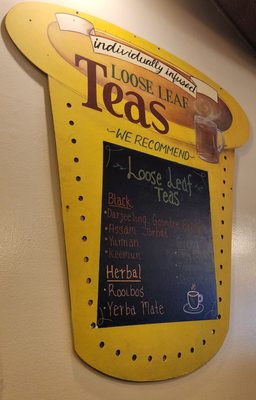 individually infused
LOOSE LEAF
Teas
~WE RECOMMEND~
Loose Leaf
TEAS
Black
•Darjeeling,
•Assam
•Yunnan
•Keemun
Herbal
•Rooibos
•Yerba Mate